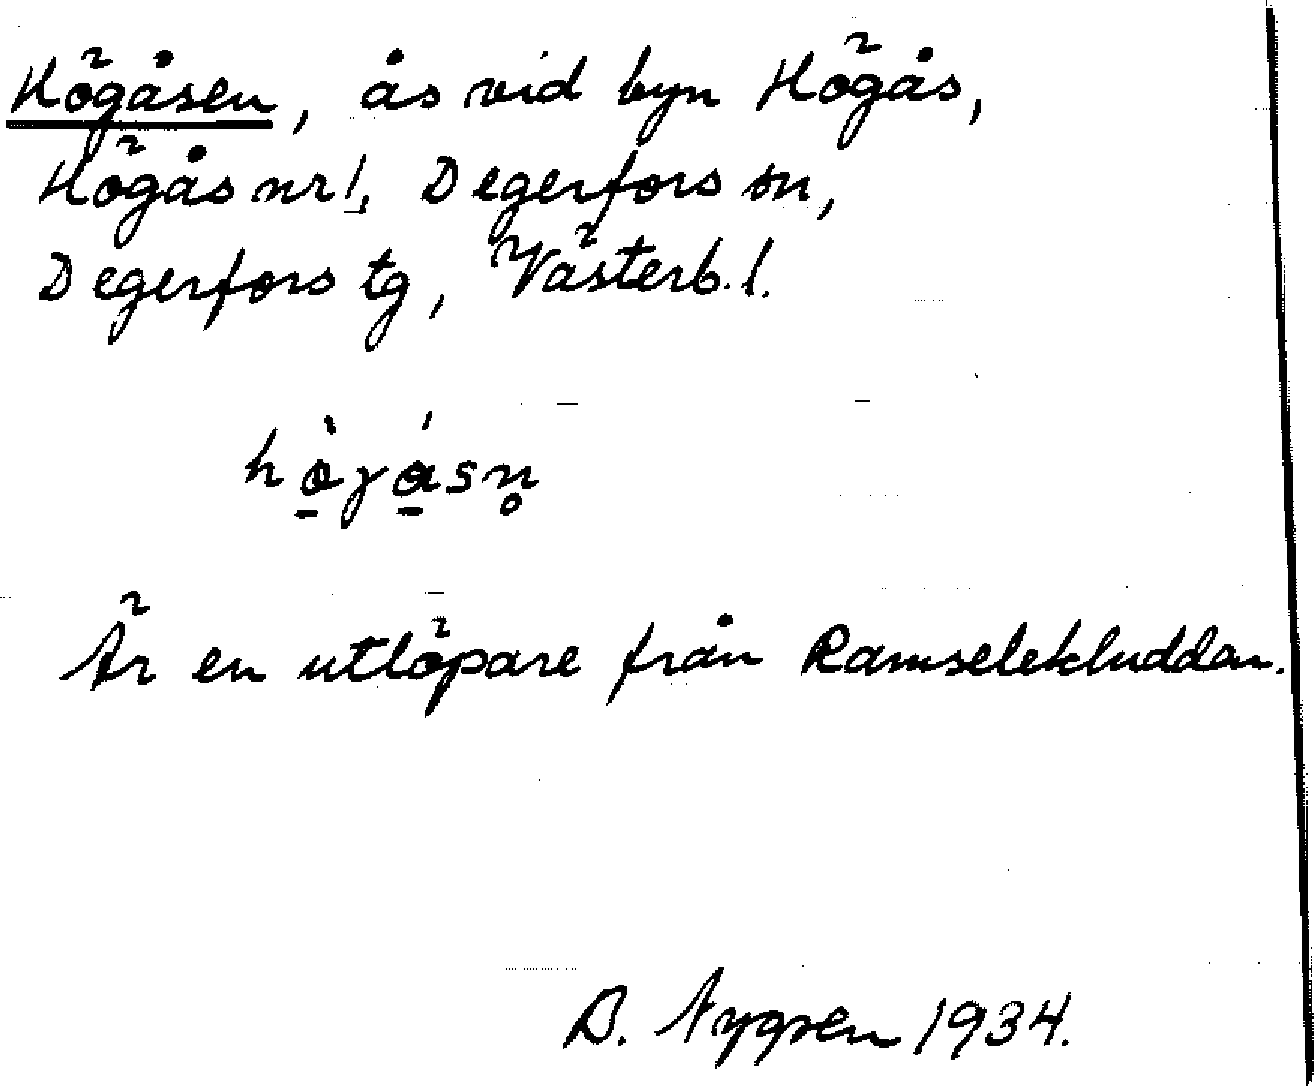 Högåsen, ås vid byn Högås,
Högås nr 1, Degerfors sn,
Degerfors tg, Västerb. l.
hø̠̀γɑ̠́sn̥
Är en utlöpare från Ramselekluddan.
B. Nygren 1934.